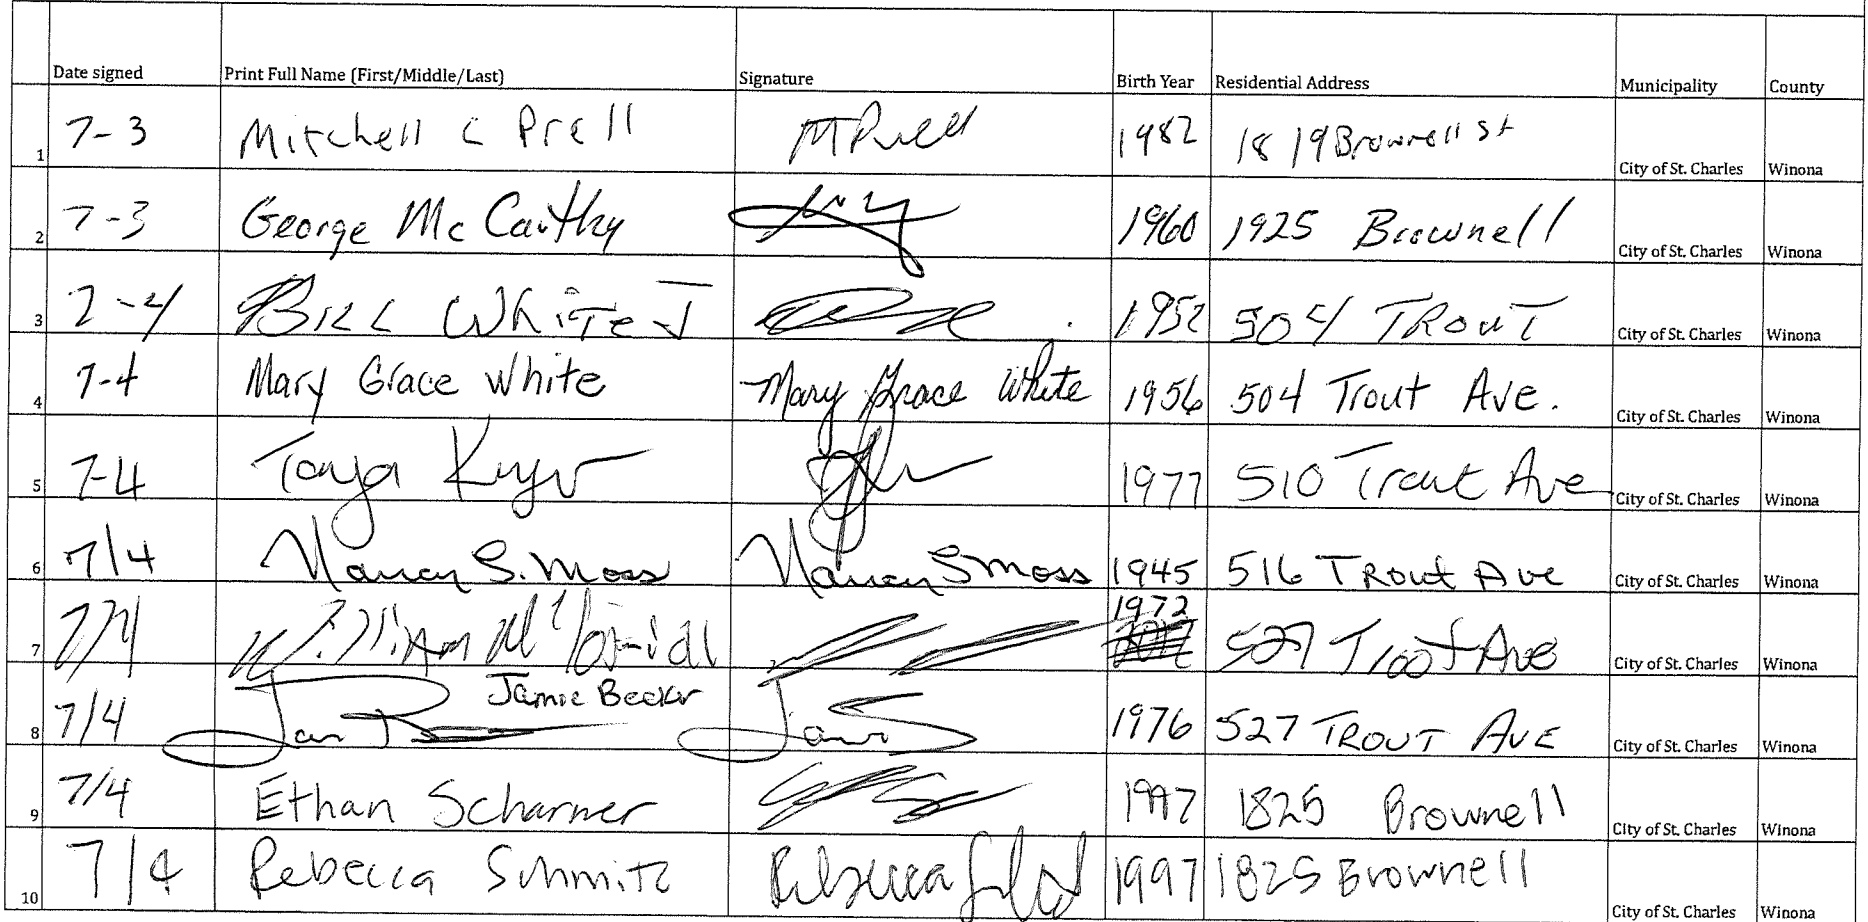 Date signed Print Full Name (First/Middle/Last) Signature Birth Year Residential Address Municipality County
1 7-3 Mitchell C Prell MPrell 1982 1819 Brownell St City of St. Charles Winona
2 7-3 George McCarthy 1960 1925 Brownell City of St. Charles Winona
3 7-4 Bill White J 1952 504 TRouT City of St. Charles Winona
4 7-4 Mary Grace White Mary Grace White 1956 504 Trout Ave. City of St. Charles Winona
5 7-4 Tanya 1977 510 Trout Ave City of St. Charles Winona
6 7/4 Nancy S. Moss Nancy S Moss 1945 516 Trout Ave City of St. Charles Winona
7 7/4 William 1972 527 Troot Ave City of St. Charles Winona
8 7/4 Jamie Becker 1976 527 TROUT AVE City of St. Charles Winona
9 7/4 Ethan Scharmer 1997 1825 Brownell City of St. Charles Winona
10 7/4 Rebecca Schmitz Rebecca 1997 1825 Brownell City of St. Charles Winona